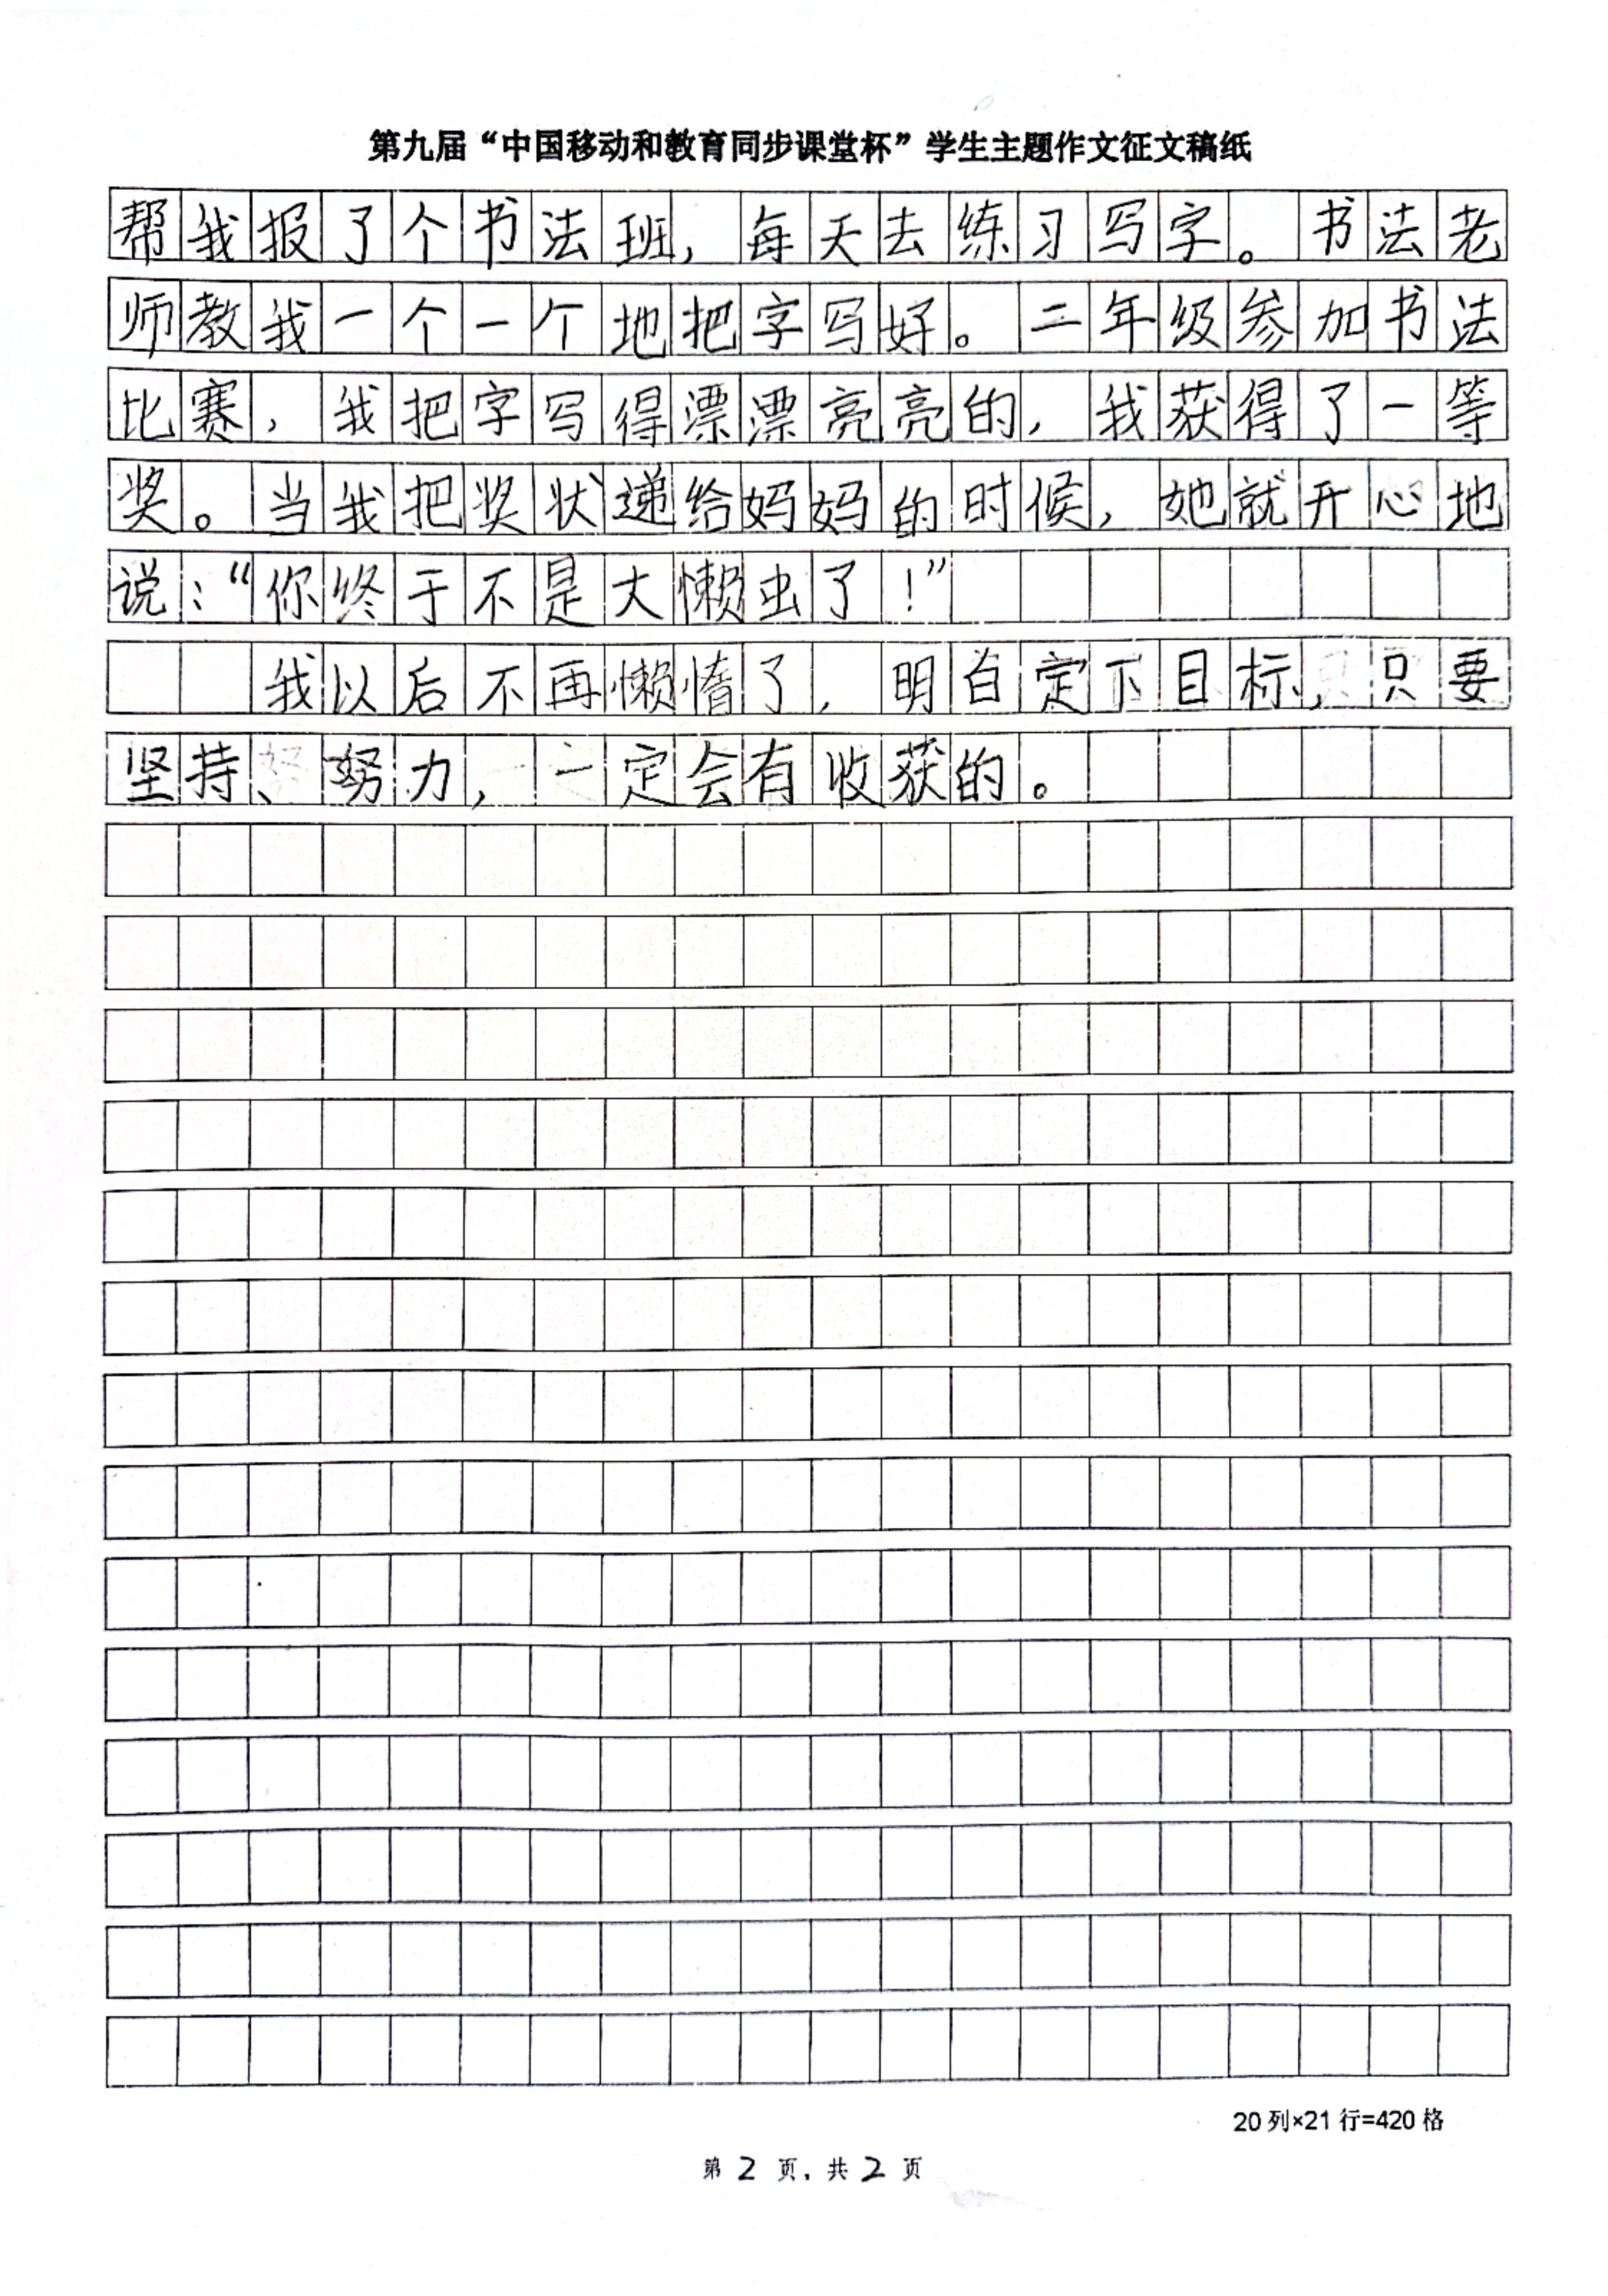 第九届“中国移动和教育同步课堂杯”学生主题作文征文稿纸
帮我报了个书法班，每天去练习写字。书法老
师教我一个一个地把字写好。二年级参加书法
比赛，我把字写得漂漂亮亮的，我获得了一等
奖。当我把奖状递给妈妈的时候，她就开心地
说：“你终于不是大懒虫了！”
我以后不再懒惰了，明白定下目标，只要
坚持、努力，一定会有收获的。
20列×21行=420格
第2页，共2页